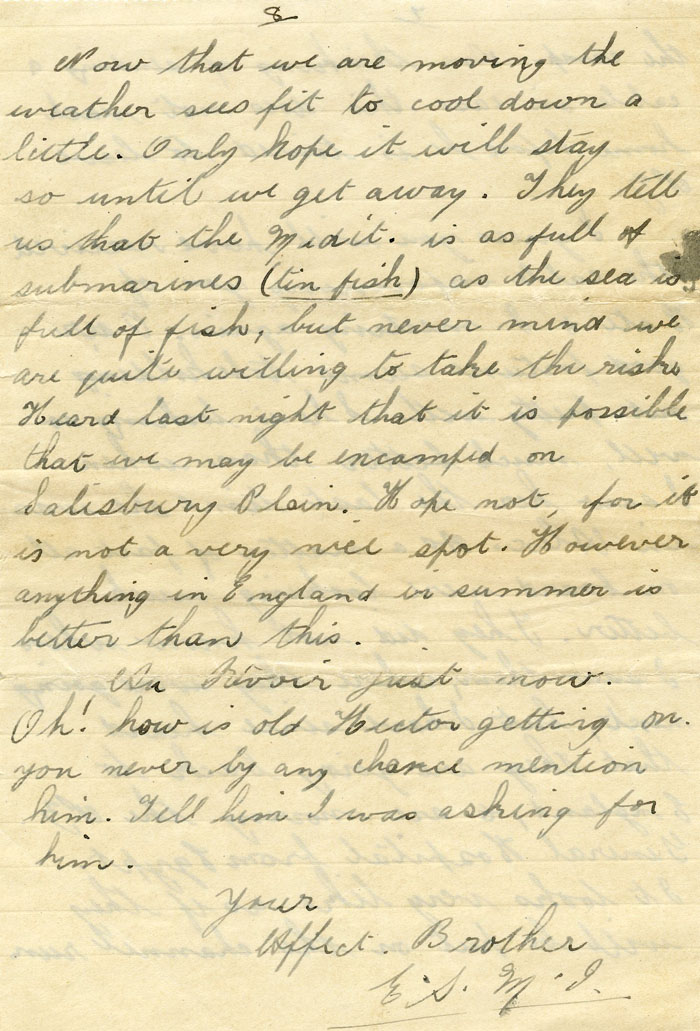 8
Now that we are moving the
weather sees fit to cool down a
little. Only hope it will stay
so until we get away. They tell
us that the Medit. is as full of
submarines (tin fish) as the sea is
full of fish, but never mind we
are quite willing to take the risk.
Heard last night that it is possible
that we may be encamped on
Salisbury Plain. Hope not, for it
is not a very nice spot. However
anything in England in summer is
better than this.
Au Revoir just now.
Oh! how is old Hector getting on.
you never by any chance mention
him. Tell him I was asking for
him.
Your
Affect. Brother
E. S. M. I.